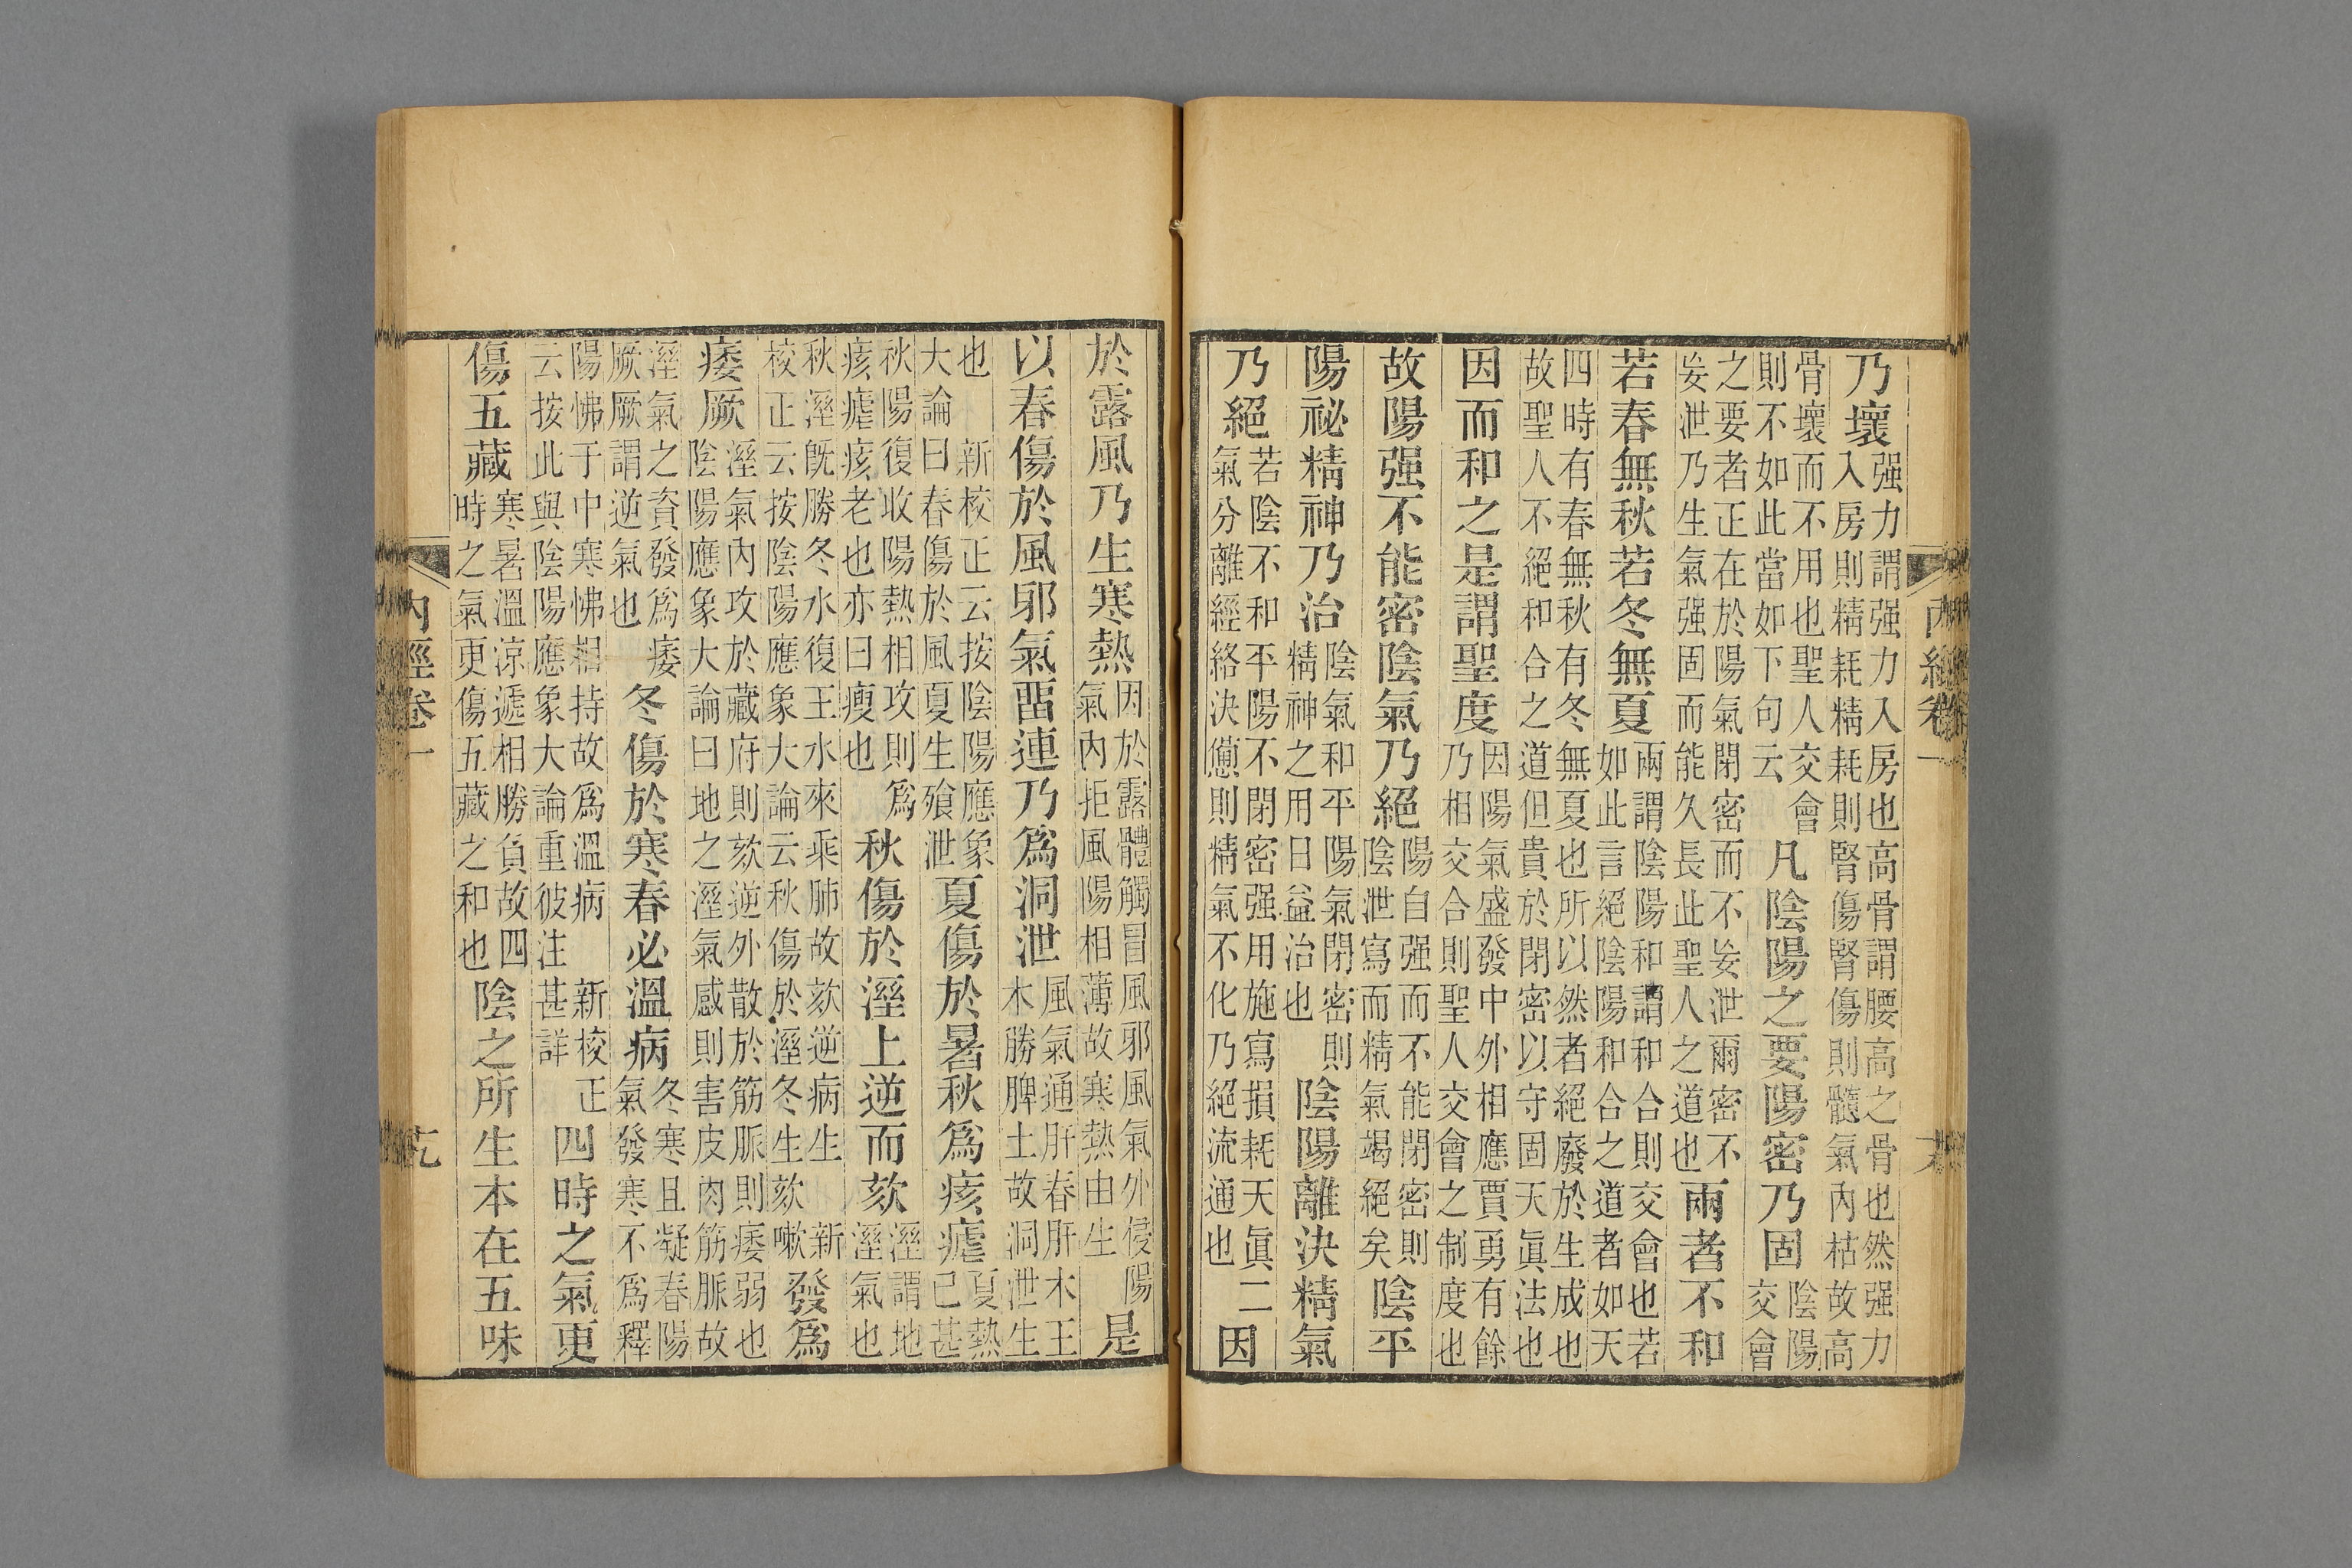 內經卷一
乃壞强力謂强力入房也高骨謂腰高之骨也然强力入房則精耗精耗則腎傷腎傷則髓氣內枯故高
骨壞而不用也聖人交會則不如此當如下句云凡陰陽之要陽密乃固陰陽交會
之要者正在於陽氣閉密而不妄泄爾密不妄泄乃生氣强固而能久長此聖人之道也兩者不和
若春無秋若冬無夏兩謂陰陽和謂和合則交會也若如此言絕陰陽和合之道者如天
四時有春無秋有冬無夏也所以然者絕廢於生成也故聖人不絕和合之道但貴於閉密以守固天眞法也
因而和之是謂聖度因陽氣盛發中外相應賈勇有餘乃相交合則聖人交會之制度也
故陽强不能密陰氣乃絕陽自强而不能閉密則陰泄寫而精氣竭絕矣陰平
陽祕精神乃治陰氣和平陽氣閉密則精神之用日益治也陰陽離決精氣
乃絕若陰不和平陽不閉密强用施寫損耗天眞二氣分離經絡決憊則精氣不化乃絕流通也因
於露風乃生寒熱因於露體觸冒風邪風氣外侵陽氣內拒風陽相薄故寒熱由生是
以春傷於風邪氣畱連乃爲洞泄風氣通肝春肝木王木勝脾土故洞泄生
也 新校正云按陰陽應象大論曰春傷於風夏生飧泄夏傷於暑秋爲痎瘧夏熱已甚
秋陽復收陽熱相攻則爲痎瘧痎老也亦曰瘦也秋傷於溼上逆而欬溼謂地溼氣也
秋溼旣勝冬水復王水來乘肺故欬逆病生 新校正云按陰陽應象大論云秋傷於溼冬生欬嗽發爲
痿厥溼氣內攻於藏府則欬逆外散於筋脈則痿弱也陰陽應象大論曰地之溼氣感則害皮肉筋脈故
溼氣之資發爲痿厥厥謂逆氣也冬傷於寒春必溫病冬寒且凝春陽氣發寒不爲釋
陽怫于中寒怫相持故爲溫病 新校正云按此與陰陽應象大論重彼注甚詳四時之氣更
傷五藏寒暑溫涼遞相勝負故四時之氣更傷五藏之和也陰之所生本在五味
內經卷一